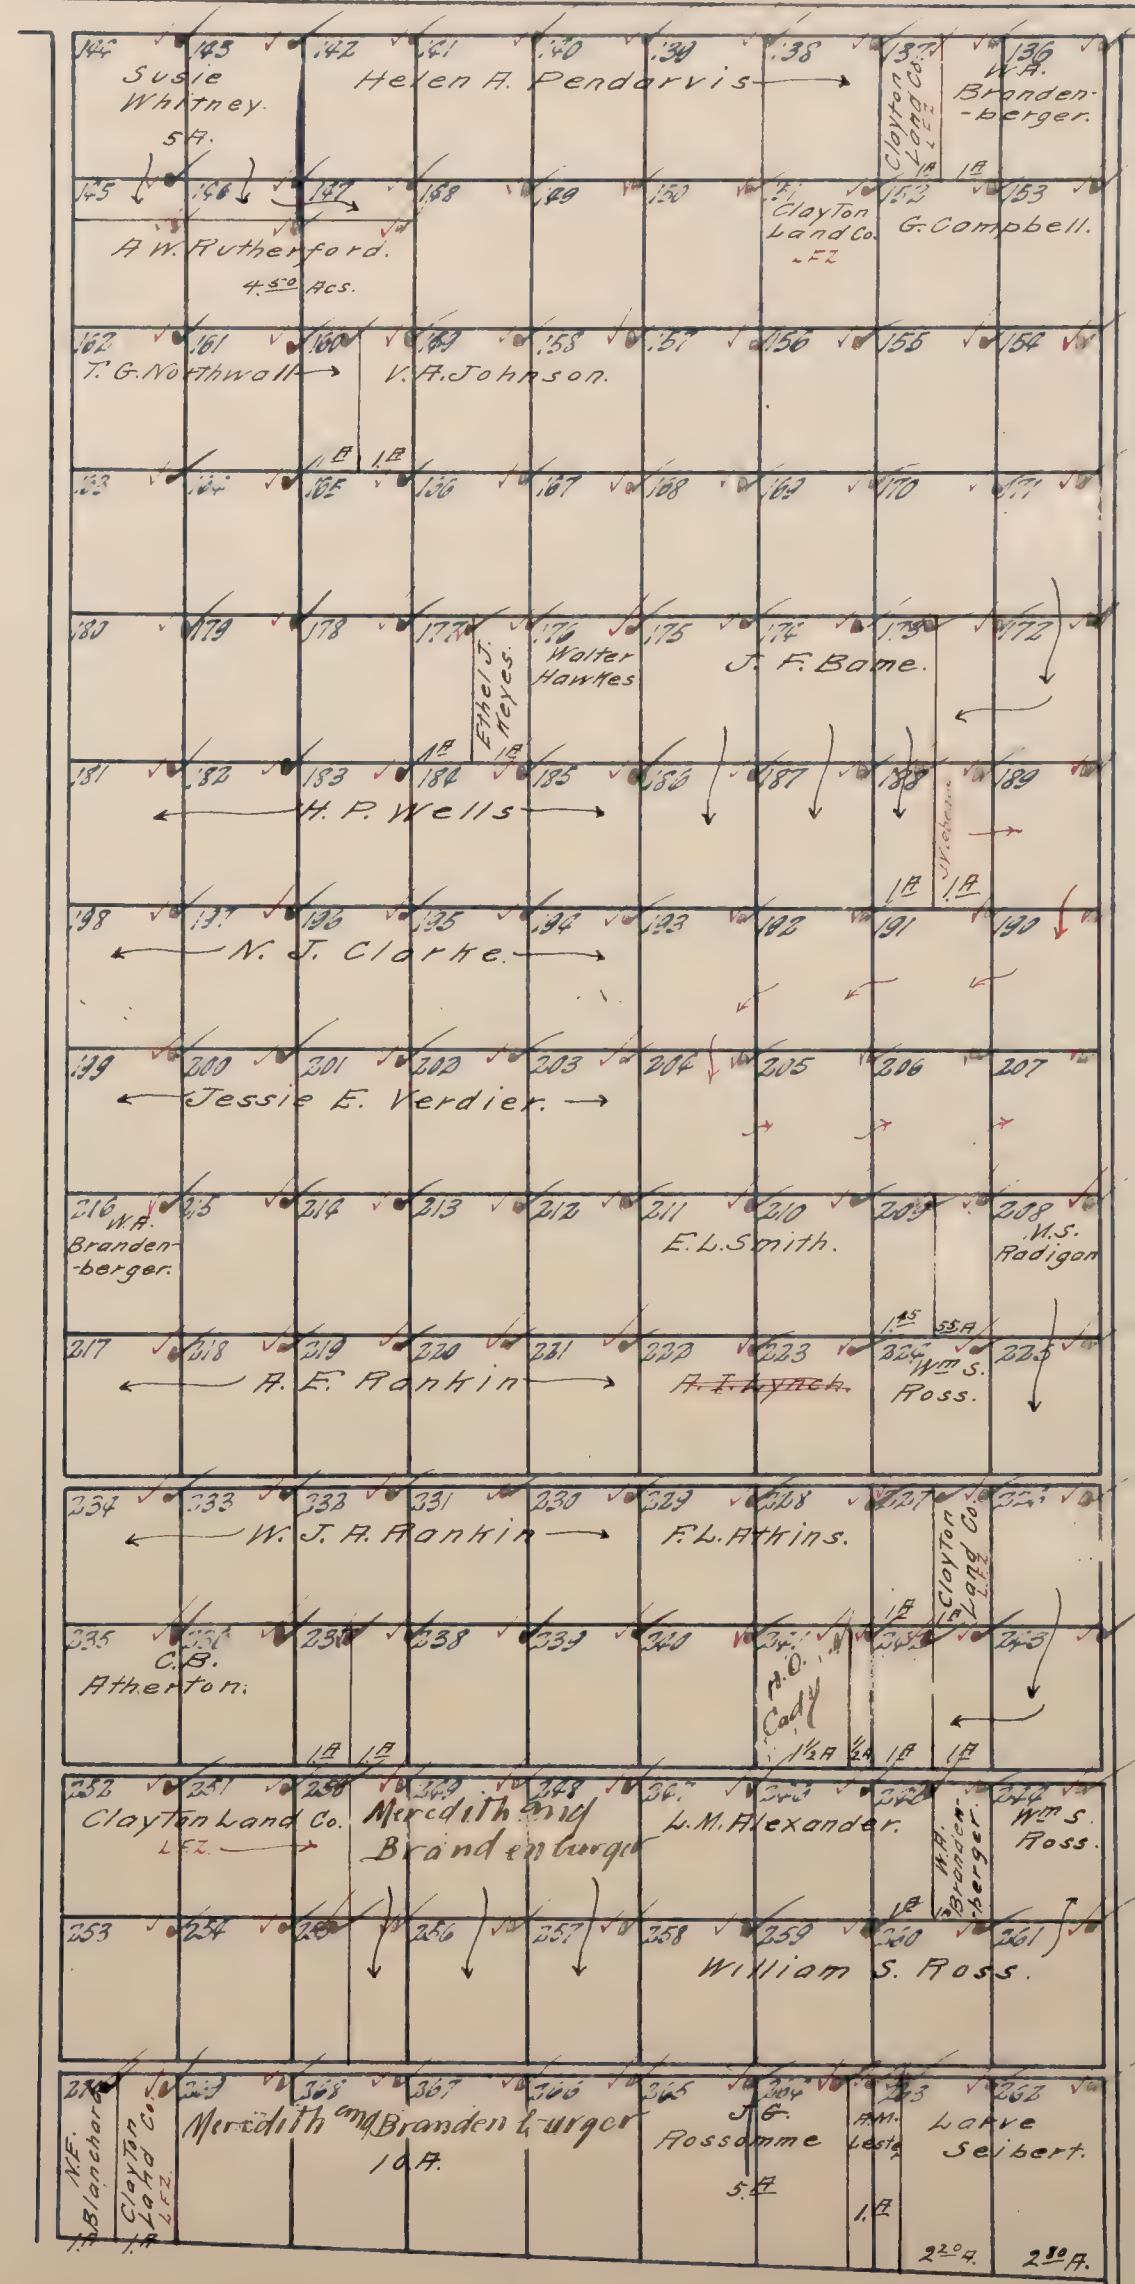 144 143 142 141 140 139 138 137 136
Susie
Whitney.
5 A.
Helen A. Pendarvis
Clayton
Land Co.
LFZ
1A
W.A.
Branden-
-berger.
1A
145 146 147 148 149 150 151 152 153
Clayton
Land Co.
LFZ
G. Campbell.
A W. Rutherford.
4.50 Acs.
162 161 160 159 158 157 156 155 154
T. G. Northwall
V. A. Johnson.
1A 1A
163 164 165 166 167 168 169 170 171
180 179 178 177 176 175 174 173 172
Ethel J.
Keyes.
Walter
Hawkes
J. F. Bame.
1A 1A
181 182 183 184 185 186 187 188 189
H. P. Wells
1A 1A
198 197 196 195 194 193 192 191 190
N. J. Clarke.
199 200 201 202 203 204 205 206 207
Jessie E. Verdier.
216 215 214 213 212 211 210 209 208
W.A.
Branden-
-berger.
E. L. Smith.
M.S.
Radigan
1.45 .55A
217 218 219 220 221 222 223 224 225
A. E. Rankin
A. I. Lynch.
Wm S.
Ross.
234 233 232 231 230 229 228 227 226
W. J. A. Rankin
F. L. Atkins.
Clayton
Land Co.
LFZ
1A 1A
235 236 237 238 239 240 241 242 243
C.B.
Atherton.
Cady
1A 1A 1½A ½A 1A 1A
252 251 250 249 248 247 246 245 244
Clayton Land Co.
LFZ
Meredith and
Brandenburger
L. M. Alexander.
W.A.
Branden-
-berger.
Wm S.
Ross.
1A 1A
253 254 255 256 257 258 259 260 261
William S. Ross.
270 269 268 267 266 265 264 263 262
N.E.
Blanchard
1.A
Clayton
Land Co.
LFZ
1.A
Meredith and Brandenburger
10A.
J. G.
Rossomme
5.A
A.M.
Leste
1.A
Larve
Seibert.
2.20 A. 2.80 A.